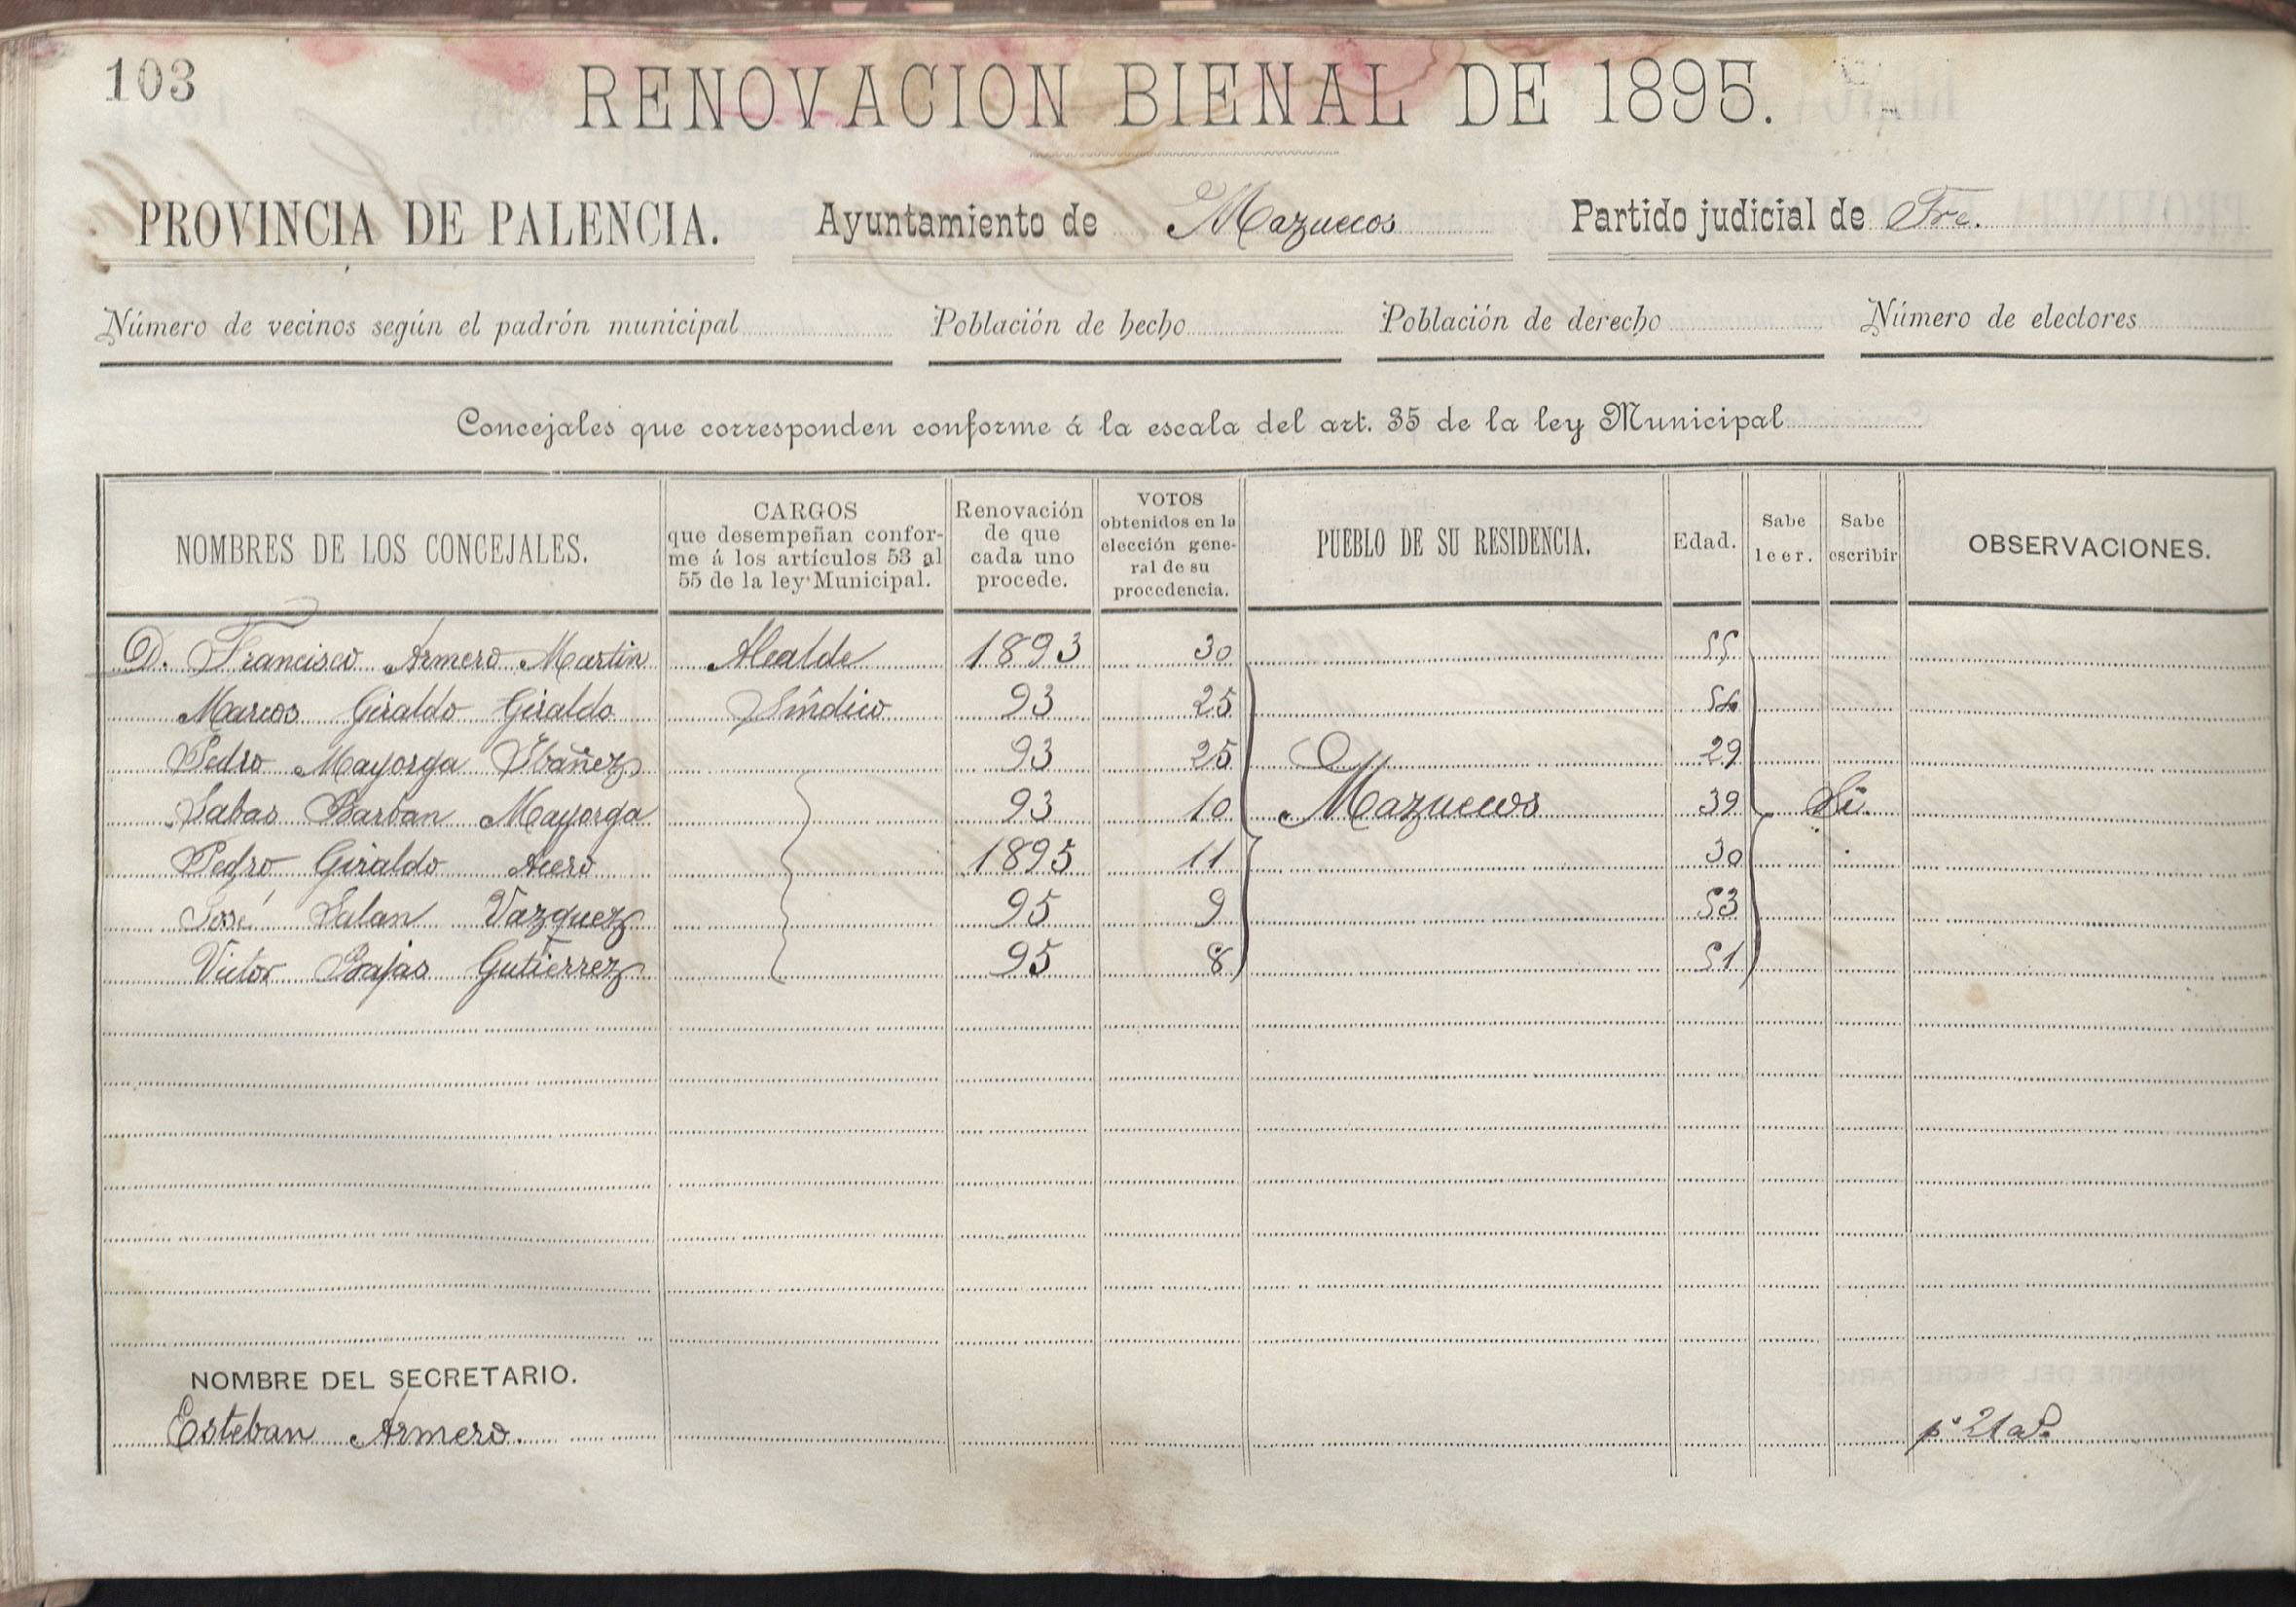 103
RENOVACION BIENAL DE 1895.
PROVINCIA DE PALENCIA. Ayuntamiento de Mazuecos Partido judicial de Fre.
Número de vecinos según el padrón municipal Población de hecho Población de derecho Número de electores
Concejales que corresponden conforme á la escala del art. 35 de la ley Municipal
NOMBRES DE LOS CONCEJALES.
CARGOS
que desempeñan confor-
me á los artículos 53 al
55 de la ley Municipal.
Renovación
de que
cada uno
procede.
VOTOS
obtenidos en la
elección gene-
ral de su
procedencia.
PUEBLO DE SU RESIDENCIA.
Edad.
Sabe
leer.
Sabe
escribir
OBSERVACIONES.
D. Francisco Armero Martin Alcalde 1893 30 55
Marcos Giraldo Giraldo Síndico 93 25 54
Pedro Mayorga Ibañez 93 25 29
Sabas Barban Mayorga 93 10 Mazuecos 39 Sí.
Pedro Giraldo Acero 1895 11 30
José Salan Vazquez 95 9 53
Victor Bajas Gutierrez 95 8 51
NOMBRE DEL SECRETARIO.
Esteban Armero.